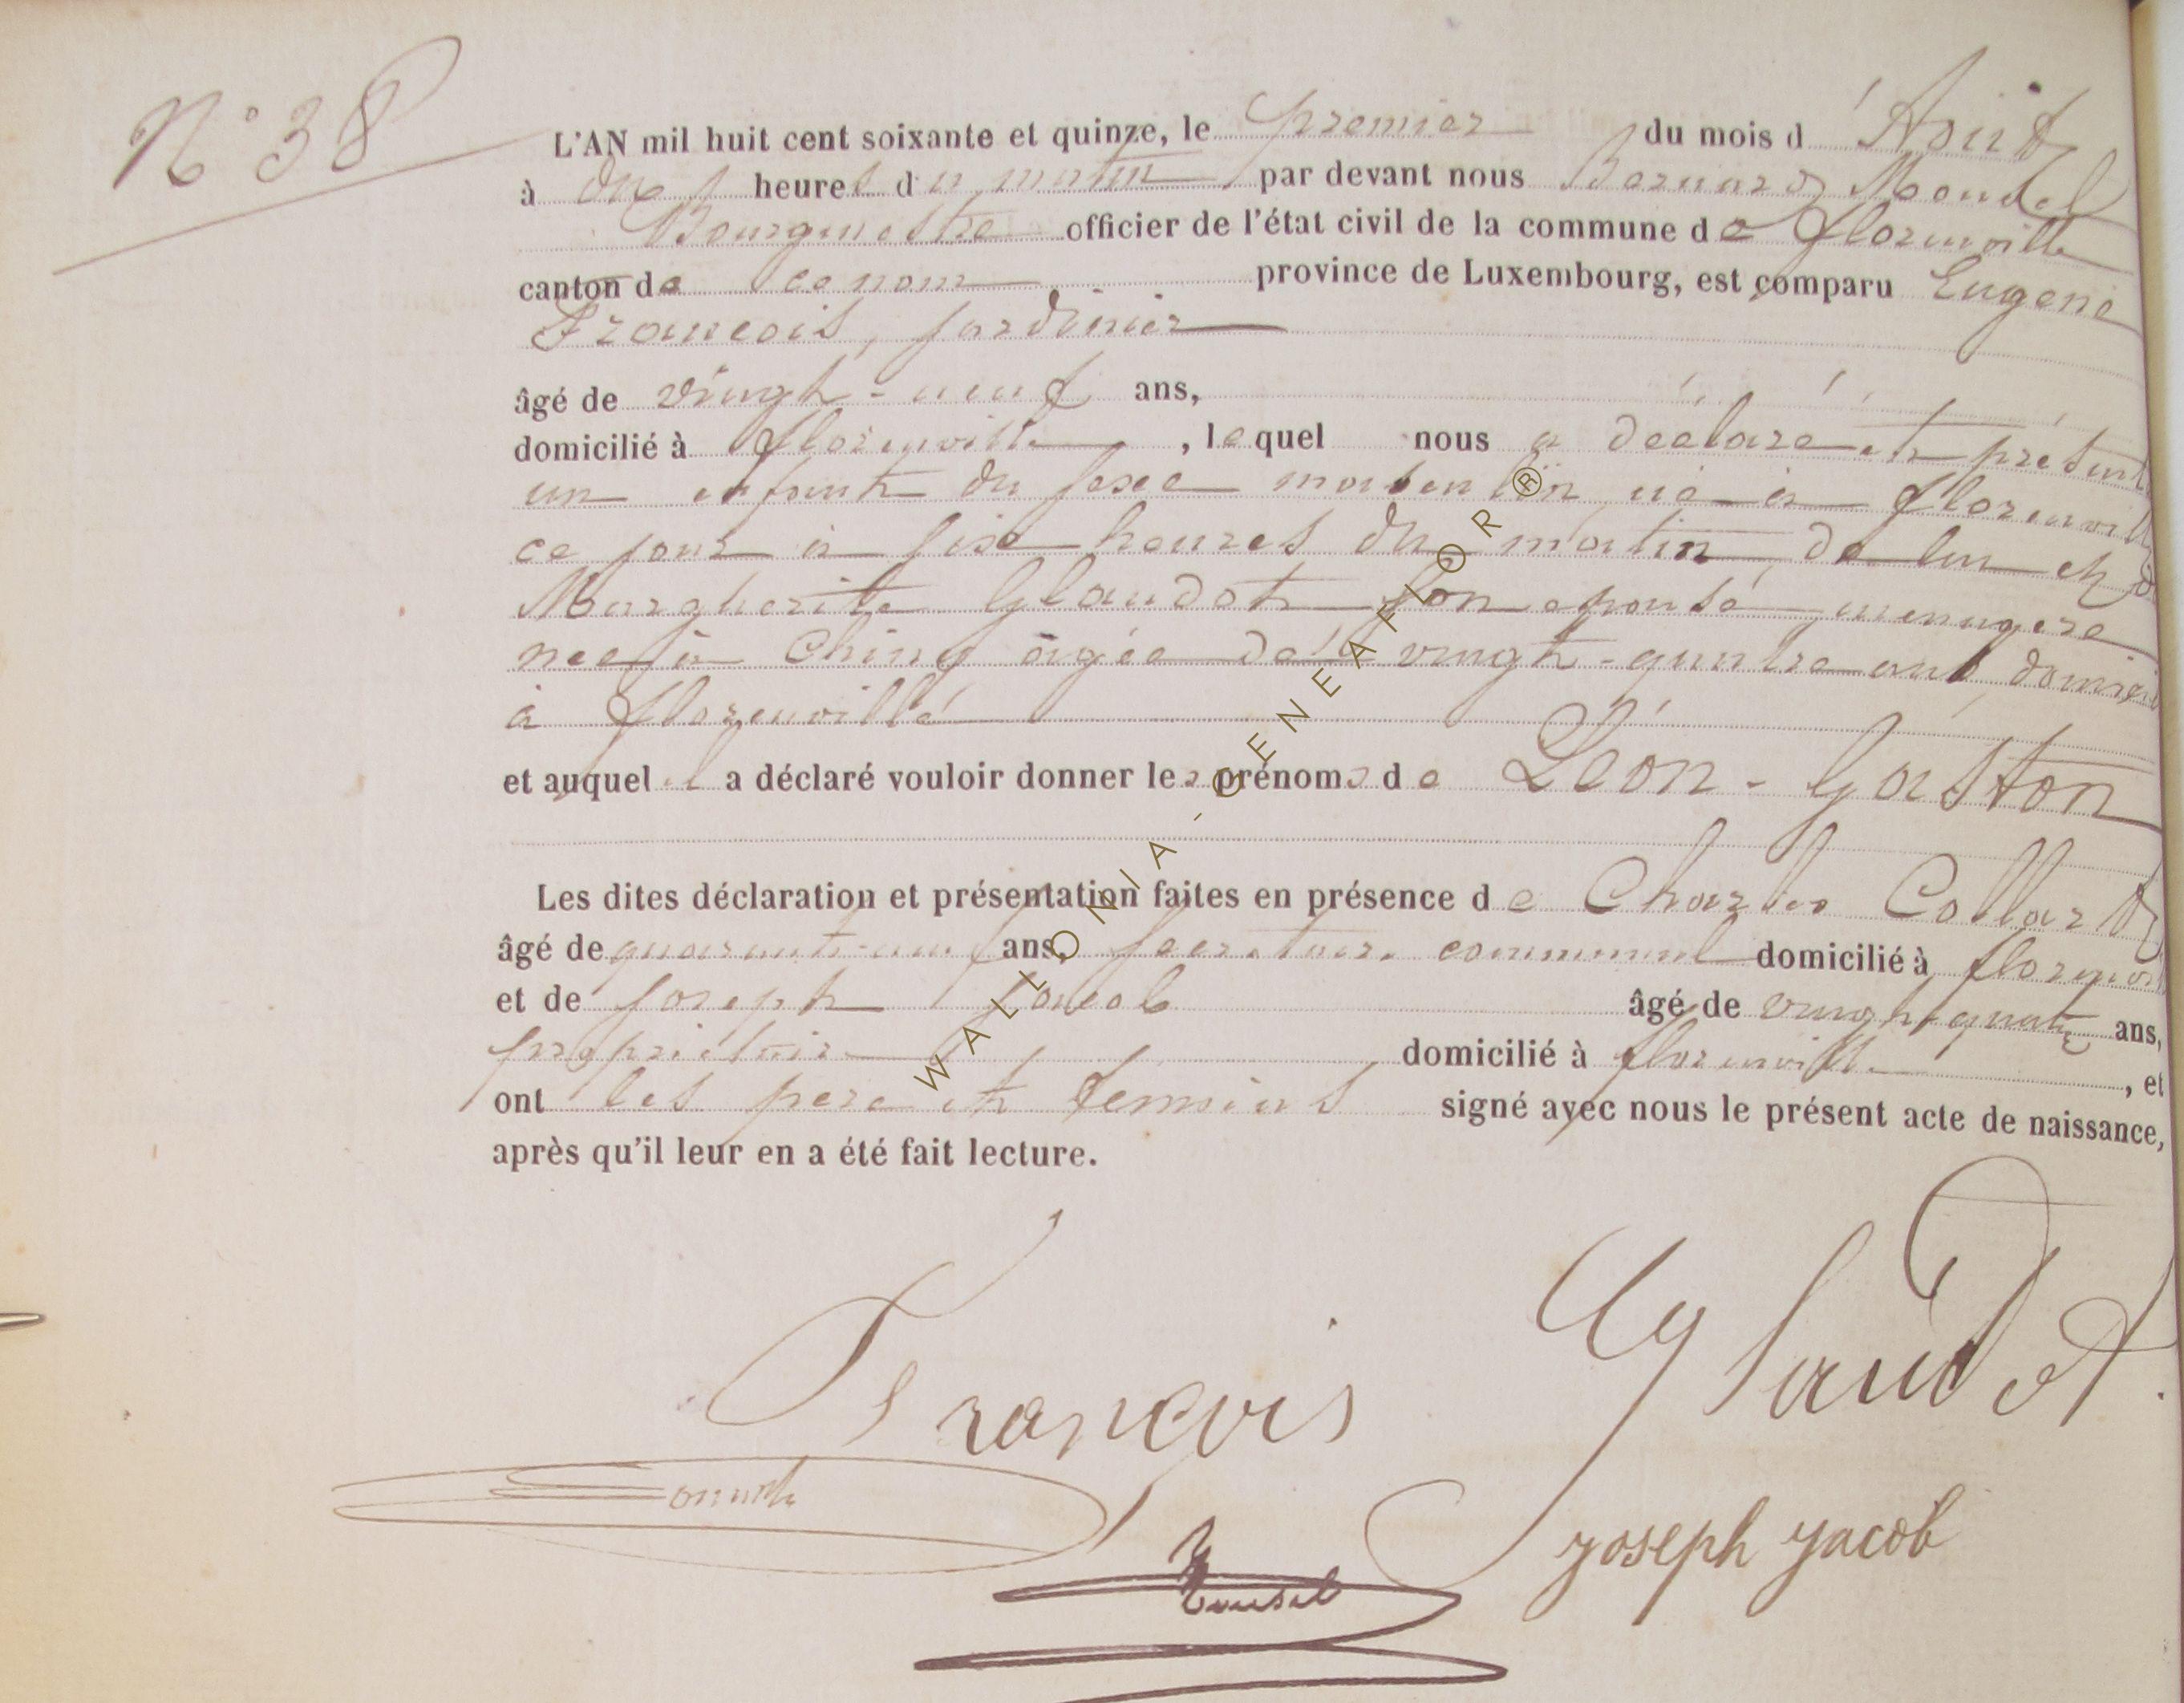 N° 38
L'AN mil huit cent soixante et quinze, le premier du mois d'Août
à dix heures du matin par devant nous Bernard
Bourgmestre officier de l'état civil de la commune de Florenville
canton de ce nom province de Luxembourg, est comparu Eugene
Francois, jardinier
âgé de vingt-neuf ans,
domicilié à Florenville, lequel nous a déclaré et présenté
un enfant du sexe masculin né à Florenville
ce jour à six heures du matin, de lui et de
Margherite Glaudot son epouse, menagere
nee à Chiny âgée de vingt-quatre ans, domicil
à Florenville
et auquel il a déclaré vouloir donner les prénoms de Léon-Gaston
Les dites déclaration et présentation faites en présence de Charles Collard
âgé de quarante ans, secretaire communal domicilié à Florenvil
et de Joseph Jacob âgé de vingt-quatre ans,
propriétaire domicilié à Florenville, et
ont les pere et temoins signé avec nous le présent acte de naissance,
après qu'il leur en a été fait lecture.
François
Glaudot
Joseph Jacob
WALLONIA - GENEAFLOR ®